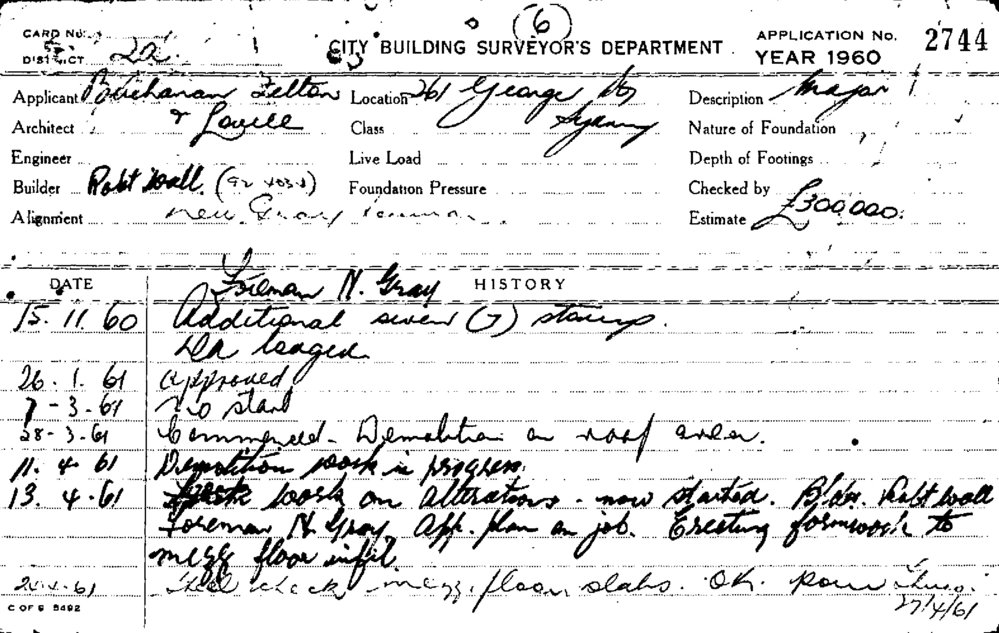 (6)
CARD No. CITY BUILDING SURVEYOR'S DEPARTMENT APPLICATION No. 2744
DISTRICT 2a. YEAR 1960
Applicant Buchanan Felton Location 261 George St Description Major
Architect & Lovell Class Sydney Nature of Foundation
Engineer Live Load Depth of Footings
Builder Robt Wall. Foundation Pressure Checked by
Alignment new Gray foreman Estimate £300000.
Foreman N. Gray
DATE HISTORY
15. 11. 60 Additional seven (7) storeys.
DA lodged.
26. 1. 61 Approved
7-3-61 No start
28-3-61 Commenced - Demolition on roof area.
11. 4. 61 Demolition work in progress.
13. 4. 61 work on alterations - now started. Bldr. Robt Wall
Foreman N. Gray. App. plan on job. Erecting formwork to
mezz floor infil.
-4-61 Steel check mezz. floor slabs. OK. pour Thurs.
27/4/61
C OF S 5492